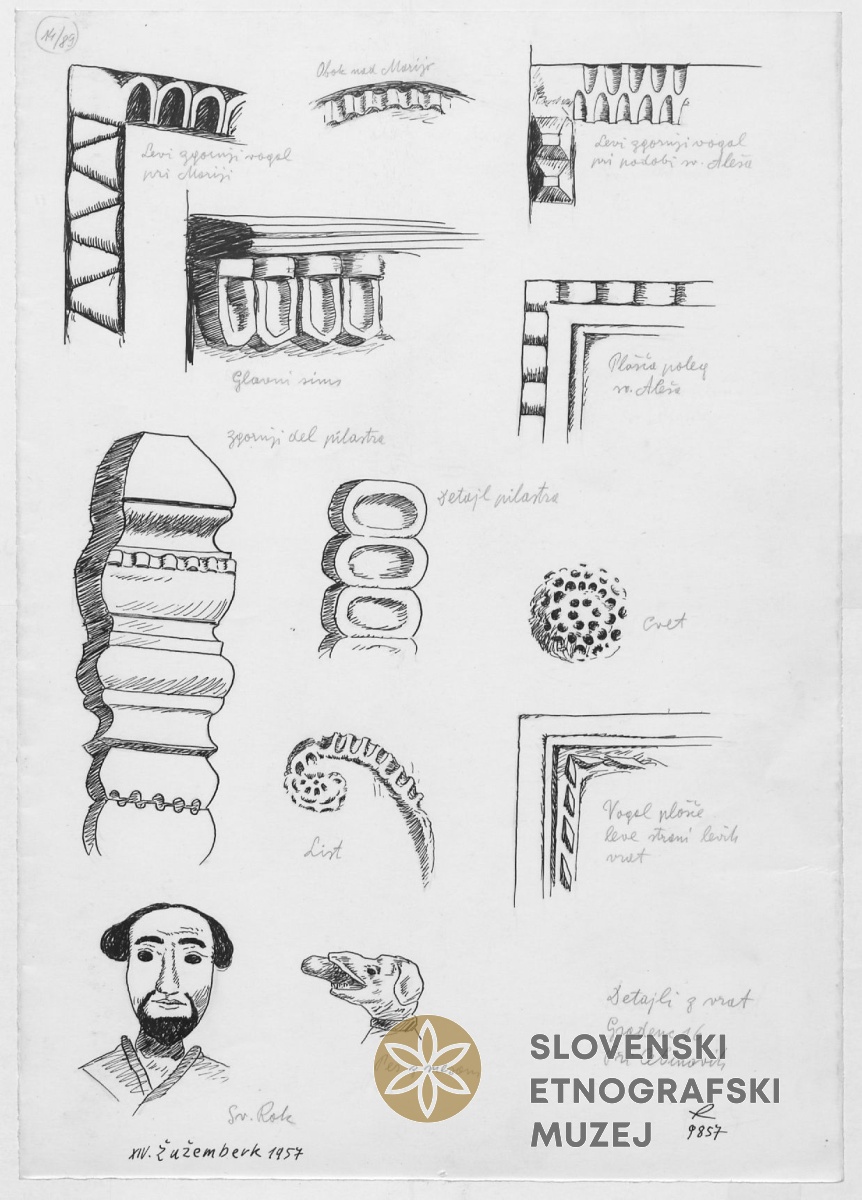 14/89
Obok nad Marijo
Levi zgornji vogal
pri Mariji
Levi zgornji vogal
pri podobi sv. Aleša
Glavni sims
Plošča poleg
sv. Aleša
Zgornji del pilastra
Detajl pilastra
Cvet
List
Vogal plošče
leve strani levih
vrat
Sv. Rok
Detajli z vrat
Gradenc 16
Pri
XIV. Žužemberk 1957
R
9857
SLOVENSKI
ETNOGRAFSKI
MUZEJ